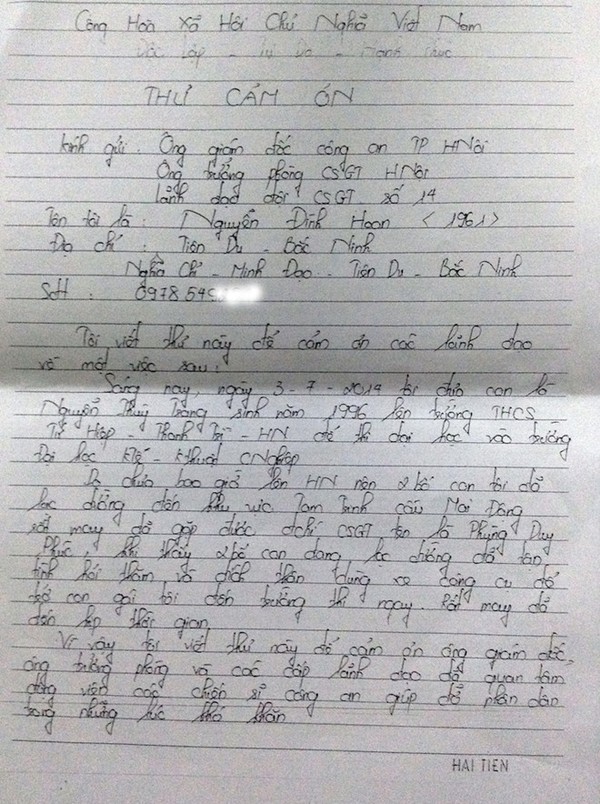 Cộng Hòa Xã Hội Chủ Nghĩa Việt Nam
Độc Lập - Tự Do - Hạnh Phúc
THƯ CẢM ƠN
Kính gửi. Ông giám đốc công an TP HNội
Ông trưởng phòng CSGT HNội
Lãnh đạo đội CSGT số 14
Tên tôi là: Nguyễn Đình Hoan <1961>
Địa chỉ: Tiên Du - Bắc Ninh
Nghĩa Chỉ - Minh Đạo - Tiên Du - Bắc Ninh
SĐT: 0978.549
Tôi viết thư này để cảm ơn các lãnh đạo
về một việc sau:
Sáng nay, ngày 3-7-2014 tôi đưa con là
Nguyễn Thùy Trang sinh năm 1996 lên trường THCS
Tứ Hiệp - Thanh Trì - HN để thi đại học vào trường
Đại học Ktế - Kthuật CNghiệp
Do chưa bao giờ lên HN nên 2 bố con tôi đã
lạc đường đến khu vực Tam Trinh cầu Mai Động
rất may đã gặp được đchí CSGT tên là Phùng Duy
Phúc, khi thấy 2 bố con đang lạc đường đã tận
tình hỏi thăm và đích thân dùng xe công cụ để
trở con gái tôi đến trường thi ngay. Rất may đã
đến kịp thời gian
Vì vậy tôi viết thư này để cảm ơn ông giám đốc,
ông trưởng phòng và các cấp lãnh đạo đã quan tâm
động viên các chiến sĩ công an giúp đỡ nhân dân
trong những lúc khó khăn
HẢI TIẾN